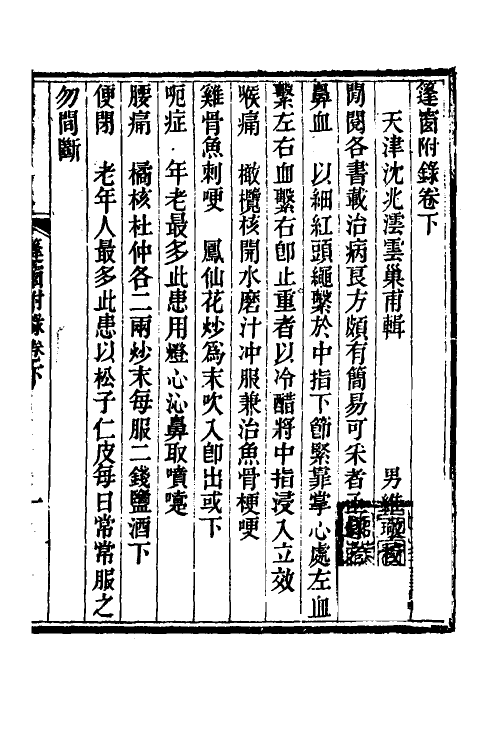 篷窗附錄卷下
天津沈兆澐雲巢甫輯　男維
閒閱各書載治病良方頗有簡易可采者
鼻血　以細紅頭繩繫於中指下節緊靠掌心處左血
繫左右血繫右卽止重者以冷醋將中指浸入立效
喉痛　橄欖核開水磨汁冲服兼治魚骨梗哽
雞骨魚刺哽　鳳仙花炒爲末吹入卽出或下
呃症　年老最多此患用燈心沁鼻取噴嚏
腰痛　橘核杜仲各二兩炒末每服二錢鹽酒下
便閉　老年人最多此患以松子仁皮每日常常服之
勿間斷
篷窗附錄卷下
一